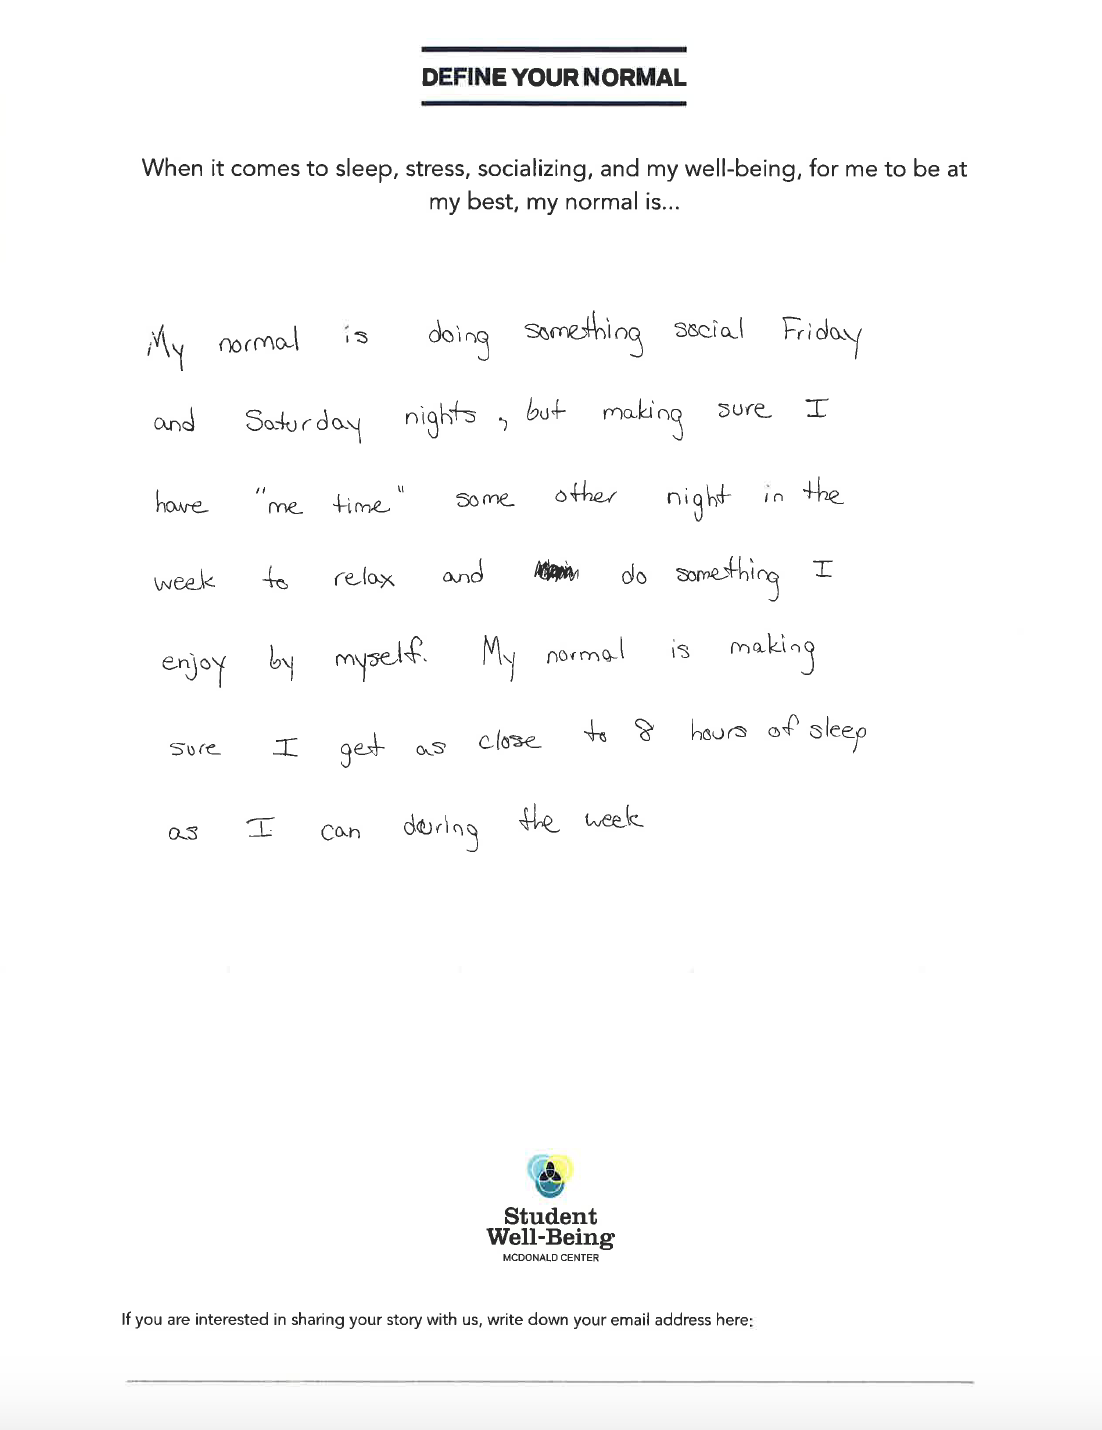 DEFINE YOUR NORMAL
When it comes to sleep, stress, socializing, and my well-being, for me to be at
my best, my normal is...
My normal is doing something social Friday
and Saturday nights, but making sure I
have "me time" some other night in the
week to relax and do something I
enjoy by myself. My normal is making
sure I get as close to 8 hours of sleep
as I can during the week
Student
Well-Being
MCDONALD CENTER
If you are interested in sharing your story with us, write down your email address here: